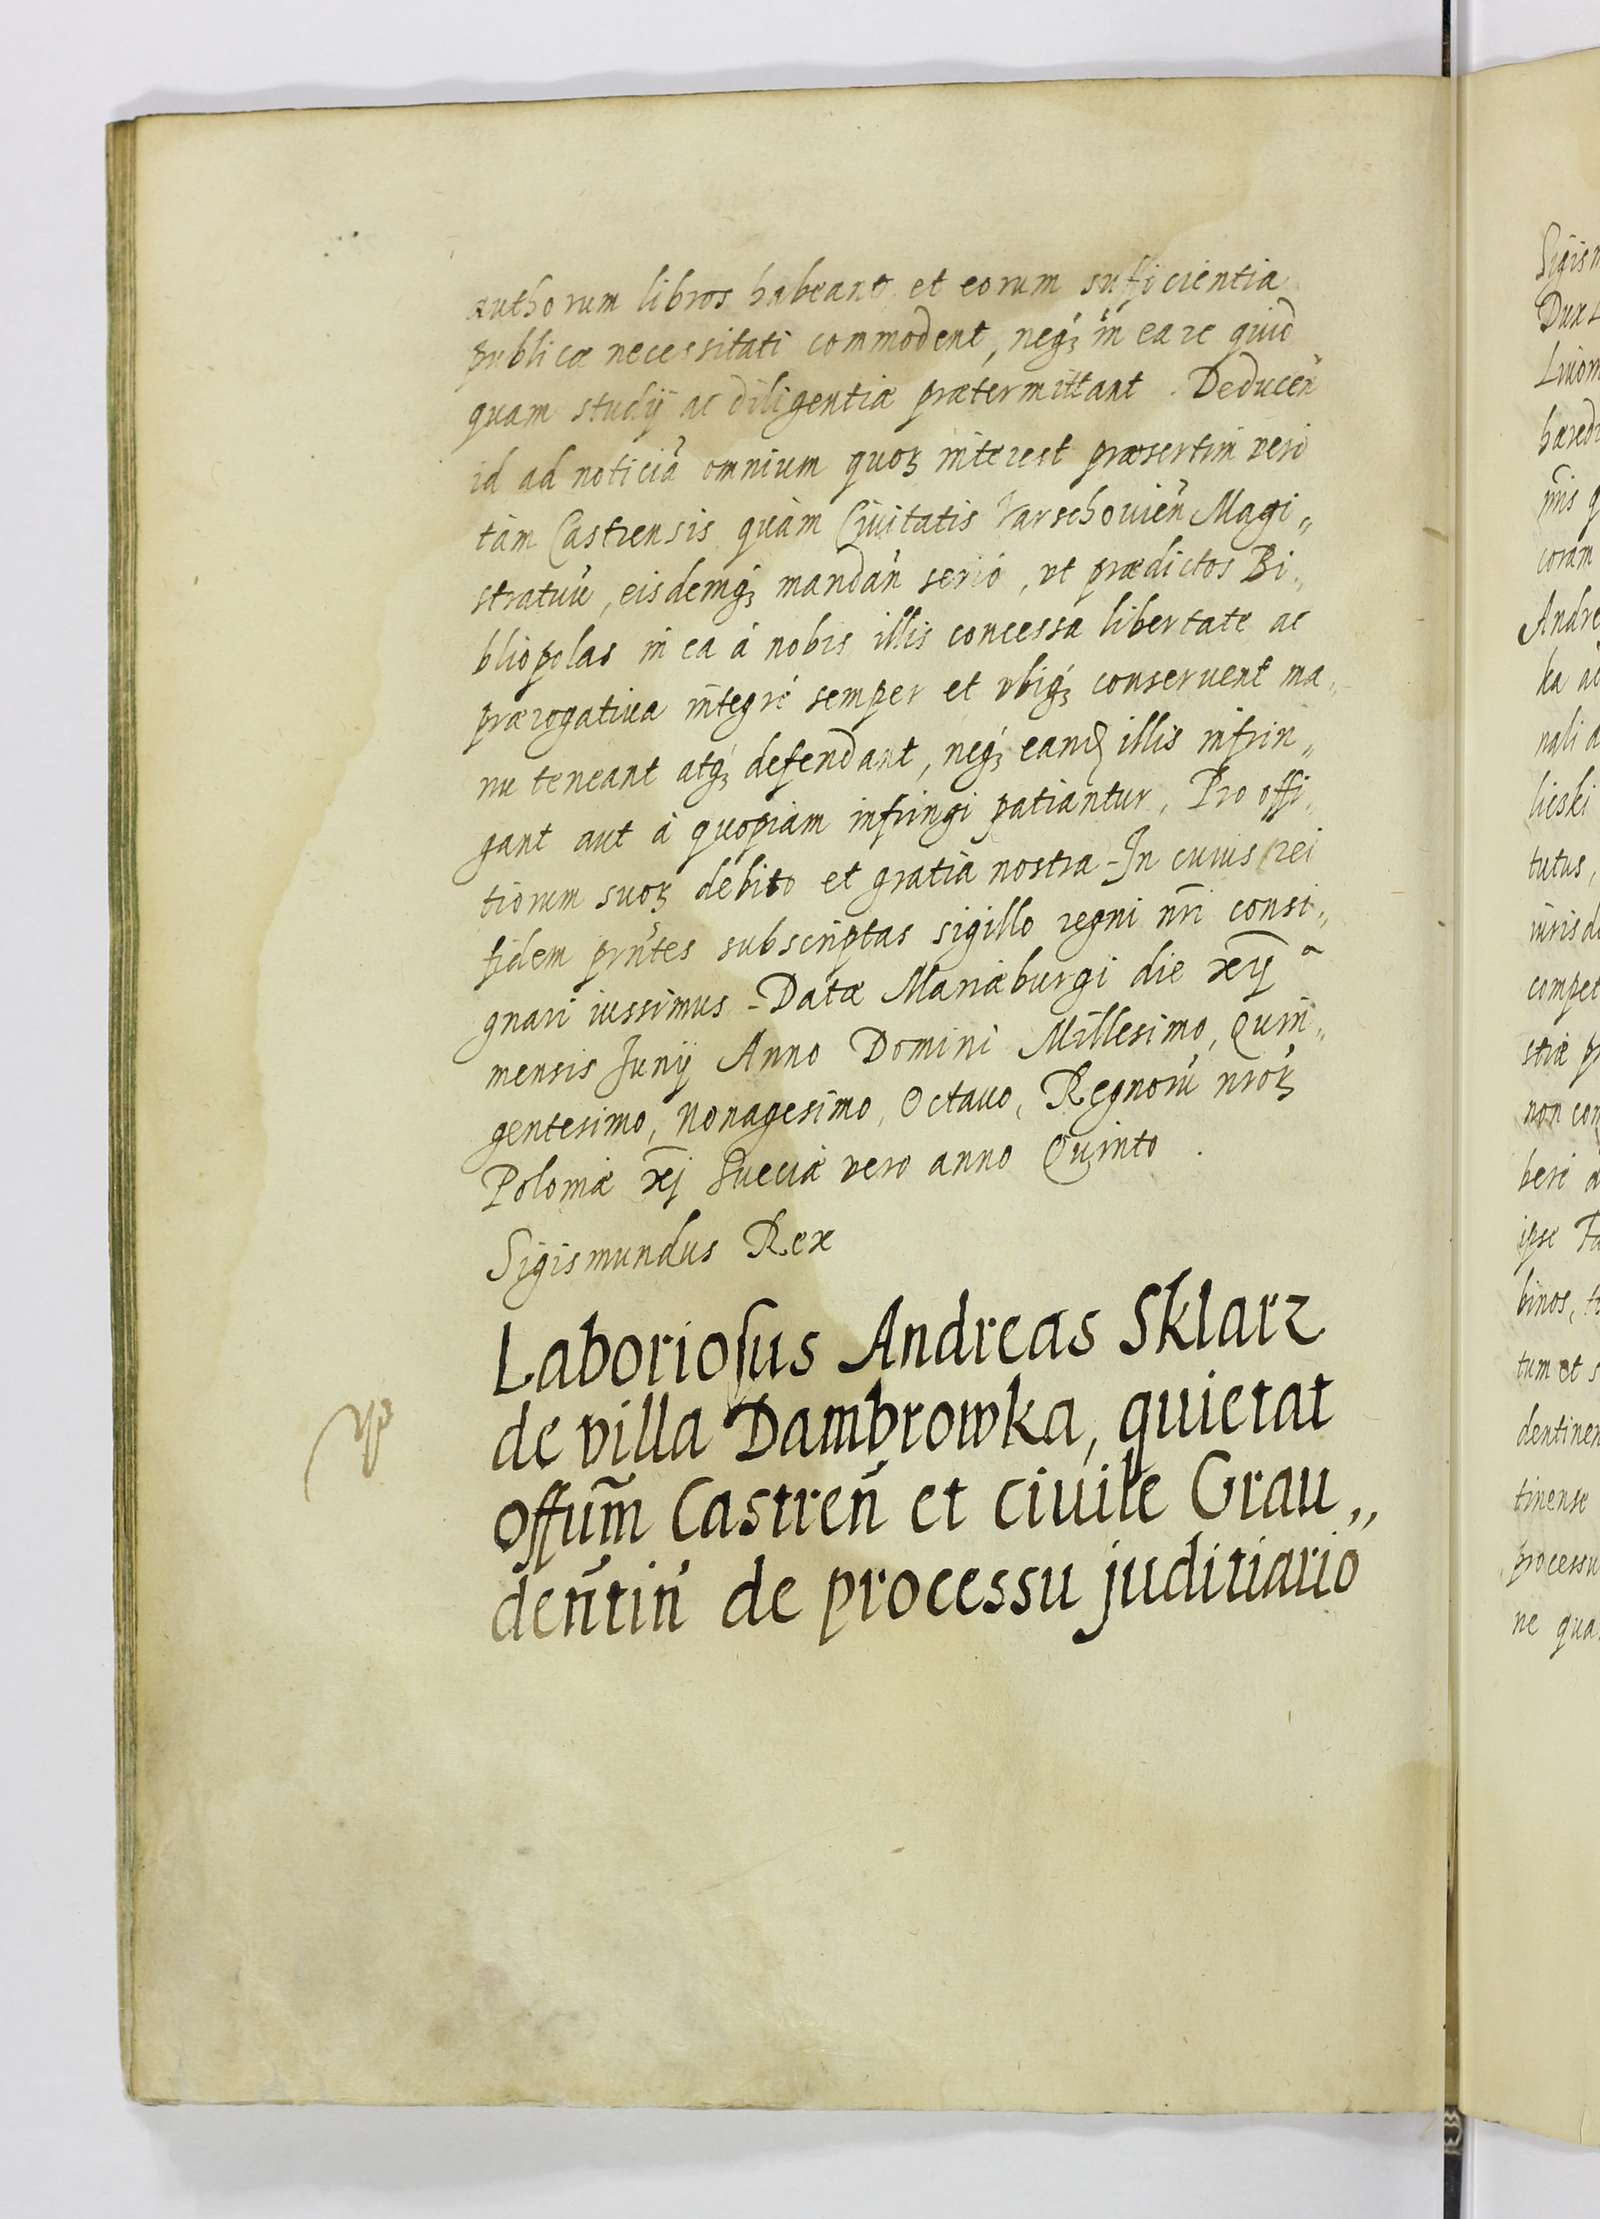 authorum libros habeant et eorum sufficientia
publicæ necessitati commodent, neq́ꝫ in ea re quid
quam studij ac diligentiæ prætermittant. Deducen̄
id ad noticiã omnium quoꝝ interest præsertim vero
tàm Castrensis quàm Ciuitatis Varschouien̄ Magi„
stratuũ, eisdemq́ꝫ mandan̄ serió, vt prædictos Bi„
bliopolas in ea á nobis illis concessa libertate ac
prærogatiua integré semper et vbiq́ꝫ conseruent ma„
nu teneant atq́ꝫ defendant, neq́ꝫ eand illis infrin„
gant aut à quopiam infringi patiantur, Pro offi„
tiorum suoꝝ debito et gratia nostra - In cuius rei
fidem prn̄tes subscriptas sigillo regni nr̄i consi„
gnari iussimus - Datæ Mariæburgi die xij a
mensis Junij Anno Domini Millesimo, Quin„
gentesimo, Nonagesimo, Octauo, Regnorũ nr̄oꝝ
Poloniæ xj Sueciæ vero anno Quinto.
Sigismundus Rex
Laboriosus Andreas Sklarz
de villa Dambrowka, quietat
Offūm Castren̄ et ciuile Grau„
den̄tin̄ de processu juditiario
Sigism
Dux L
Liuon
hæred
coram
Andre
ka
nali a
lieski
tutus,
iurisd
compet
stiæ p
non con
beri a
ipse
binos,
tum et s
dentinen
tinense
processu
ne qua